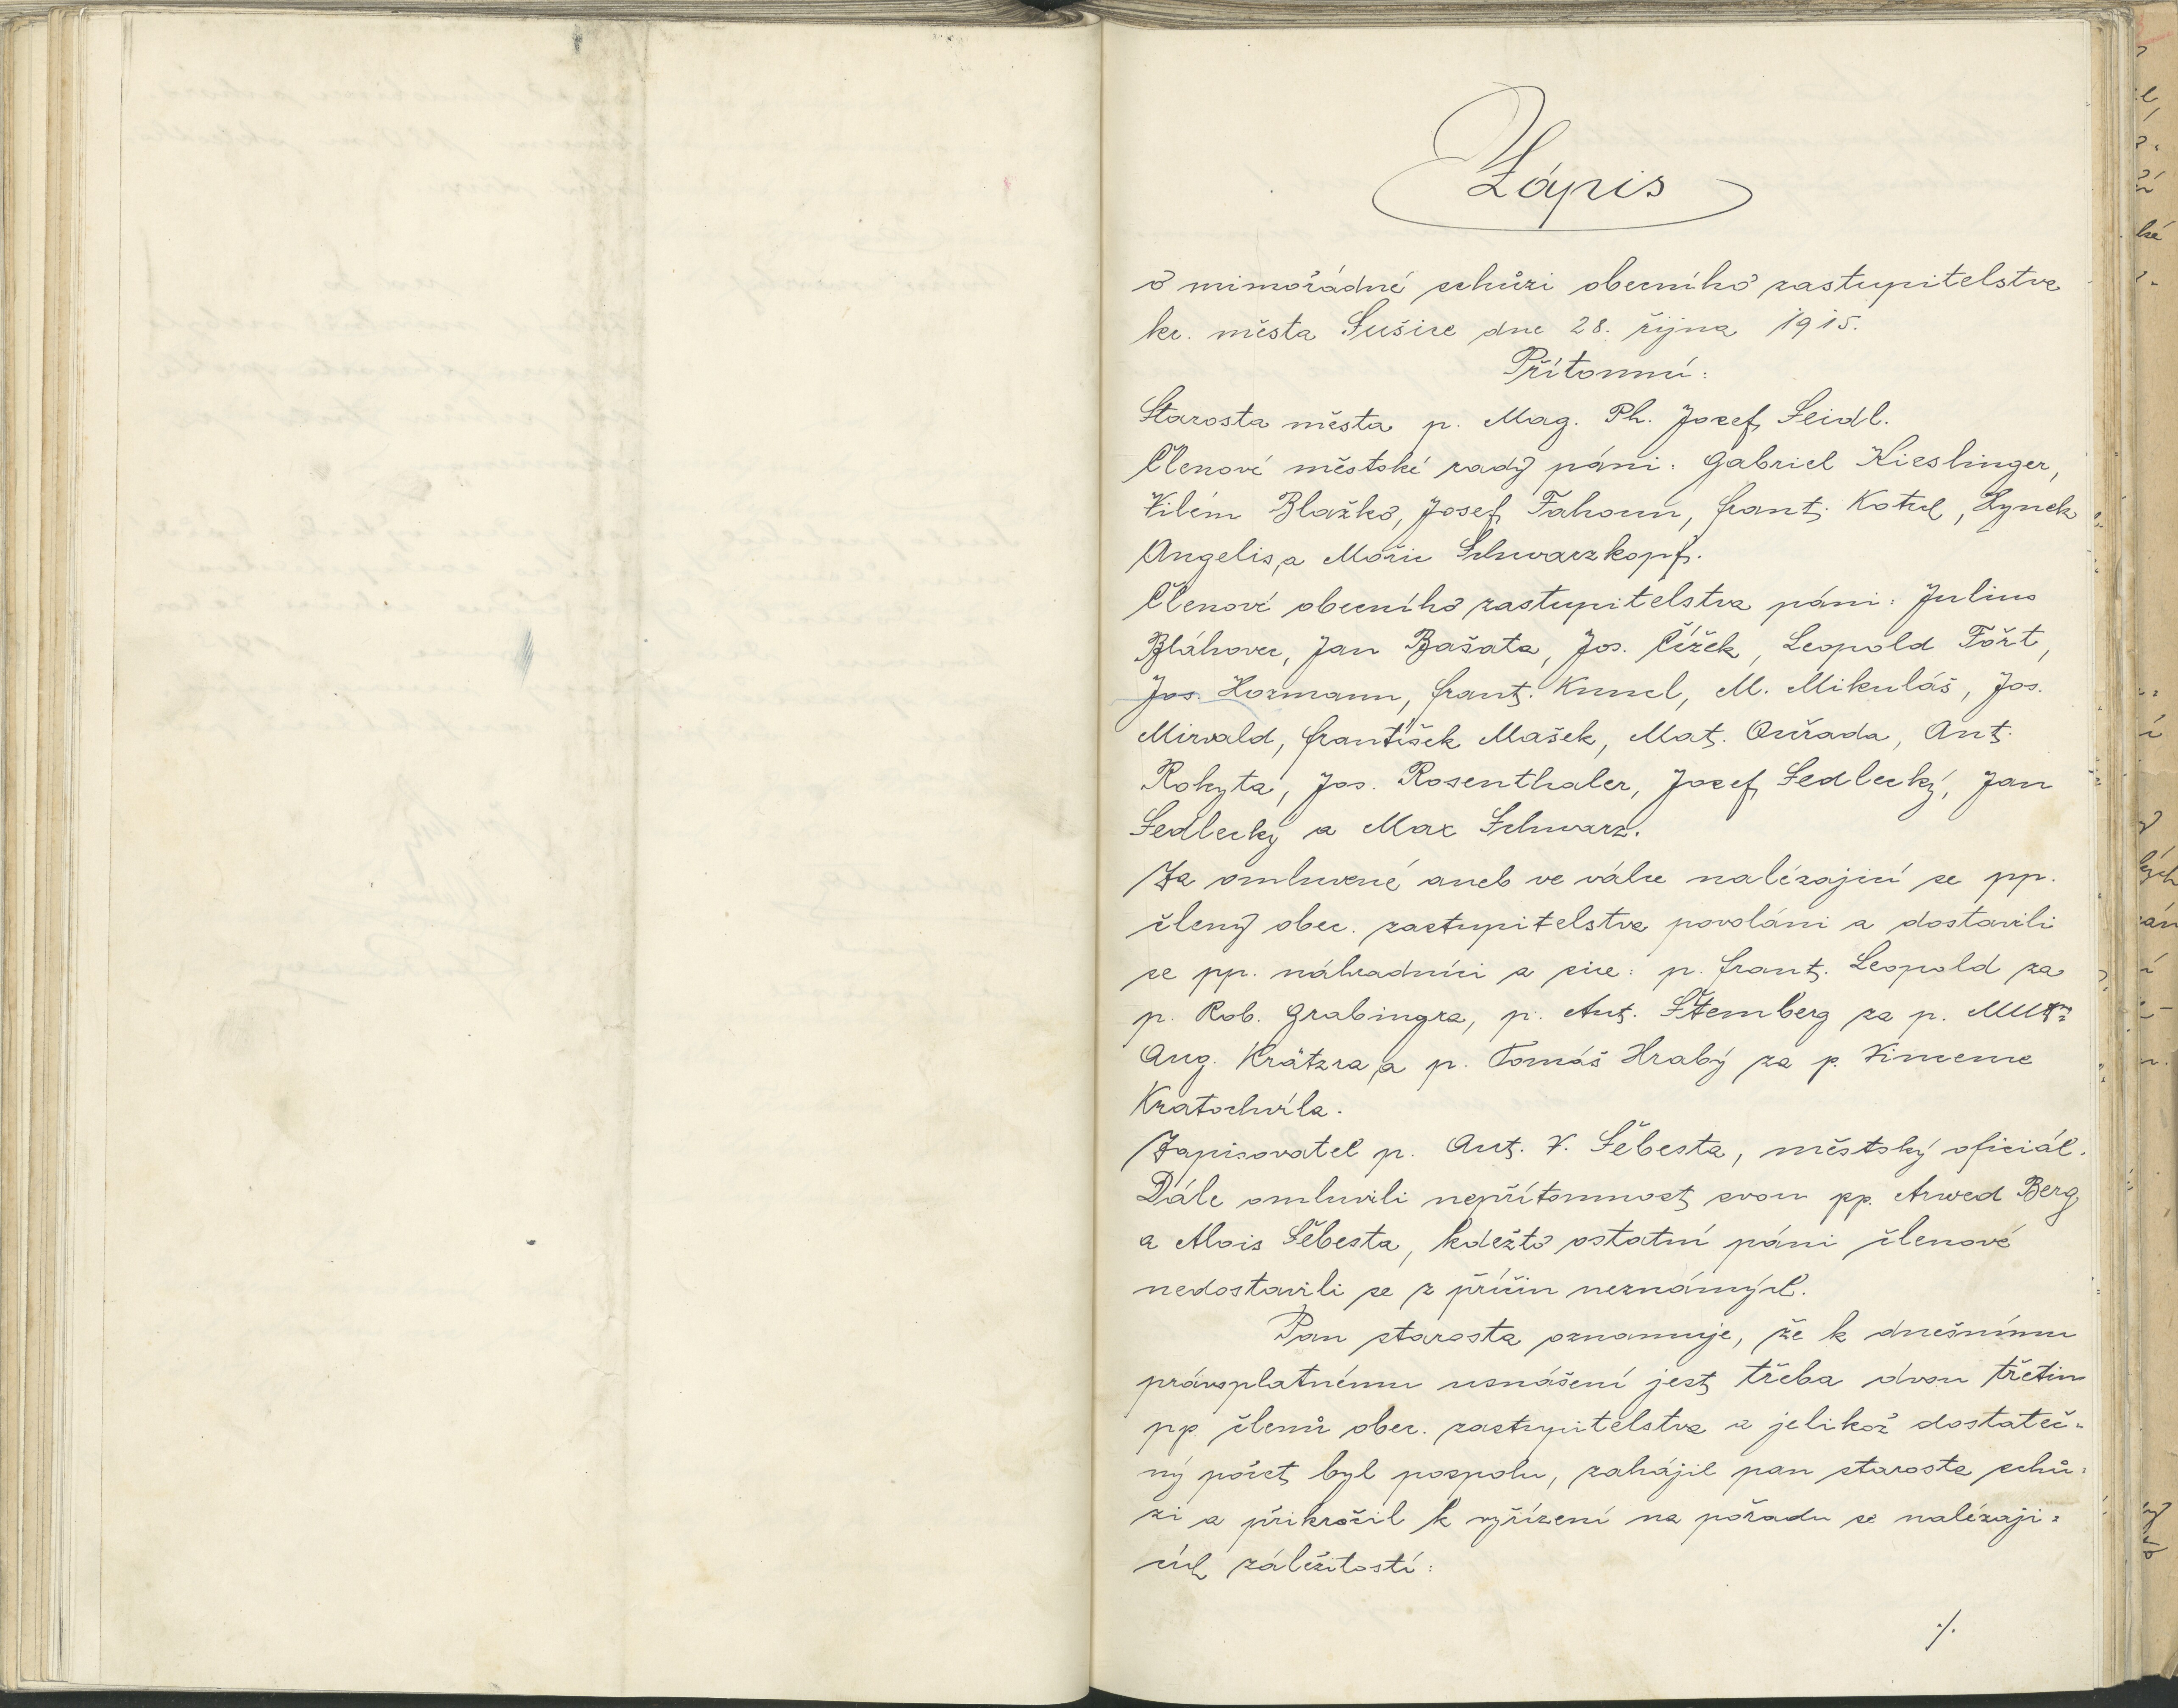 Zápis
o mimořádné schůzi obecního zastupitelstva
kr. města Sušice dne 28. října 1915.
Přítomni:
Starosta města p. Mag. Ph. Josef Seidl.
Členové městské rady páni: Gabriel Kieslinger,
Vilém Blažko, Josef Fahoun, Frant. Kotal, Hynek
Angelis, a Mořic Schwarzkopf.
Členové obecního zastupitelstva páni: Julius
Bláhovec, Jan Bašata, Jos. Čížek, Leopold Fořt,
Jos. Hozmann, Frant. Kuncl, M. Mikuláš, Jos.
Mirvald, František Mašek, Mat. Ouřada, Ant.
Rokyta, Jos. Rosenthaler, Josef Sedlecký, Jan
Sedlecký a Max Schwarz.
Za omluvené aneb ve válce nalézající se pp.
členy obec. zastupitelstva povoláni a dostavili
se pp. náhradníci a sice: p. Frant. Leopold za
p. Rob. Grabingra, p. Ant. Štemberg za p.
Aug. Krätzra, a p. Tomáš Hrabý za p. Vincence
Kratochvíla.
Zapisovatel p. Ant. V. Šebesta, městský oficiál.
Dále omluvili nepřítomnost svou pp. Arwed Berg
a Alois Šebesta, kdežto ostatní páni členové
nedostavili se z příčin neznámých.
Pan starosta oznamuje, že k dnešnímu
právoplatnému usnášení jest třeba dvou třetin
pp. členů obec. zastupitelstva a jelikož dostateč=
ný počet byl pospolu, zahájil pan starosta schů=
zi a přikročil k vyřízení na pořadu se nalézají=
cích záležitostí:
./.